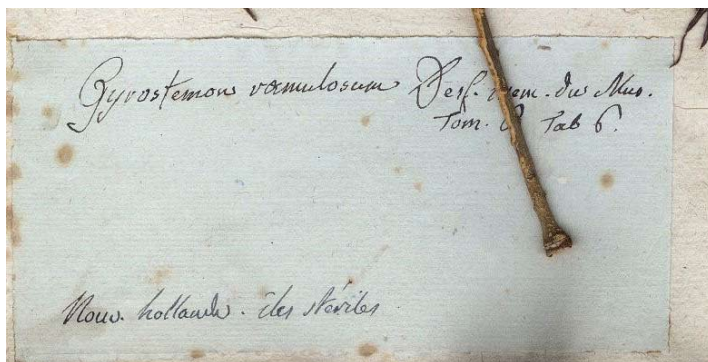 Gyrostemon ramulosum Desf. mem. du Mus.
Tom. 6 Tab 6.
Nouv. hollande. iles stériles